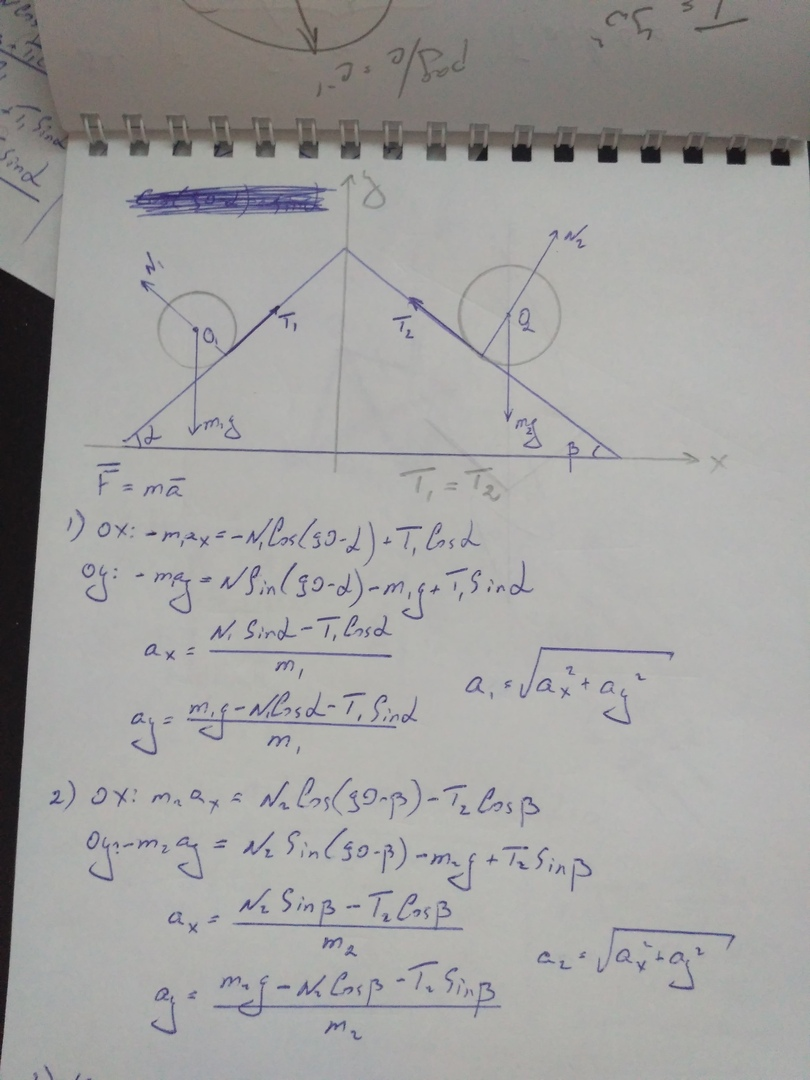 рад/с = c⁻¹
y
N₁
N₂
O₁
T₁
T₂
O₂
m₁g
m₂g
α
β
x
F̅ = ma̅
T₁ = T₂
1) OX: -m₁aₓ = -N₁Cos(90-α) + T₁Cosα
Oy: -m₁ay = NSin(90-α) - m₁g + T₁Sinα
aₓ = (N₁Sinα - T₁Cosα)/m₁
a₁ = √(aₓ² + ay²)
ay = (m₁g - N₁Cosα - T₁Sinα)/m₁
2) OX: m₂aₓ = N₂Cos(90-β) - T₂Cosβ
Oy: -m₂ay = N₂Sin(90-β) - m₂g + T₂Sinβ
aₓ = (N₂Sinβ - T₂Cosβ)/m₂
a₂ = √(aₓ² + ay²)
ay = (m₂g - N₂Cosβ - T₂Sinβ)/m₂